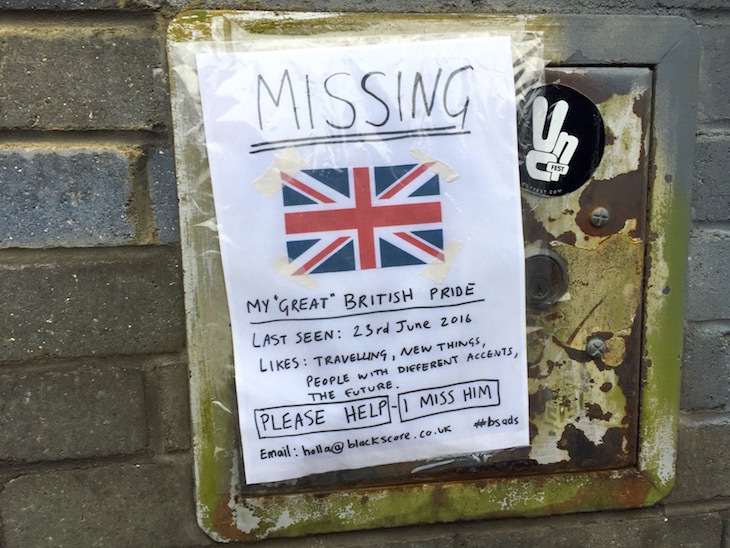 MISSING
MY "GREAT" BRITISH PRIDE
LAST SEEN: 23rd June 2016
LIKES: TRAVELLING, NEW THINGS,
PEOPLE WITH DIFFERENT ACCENTS,
THE FUTURE.
PLEASE HELP - I MISS HIM
#bsads
Email: holla@blackscore.co.uk
FEST